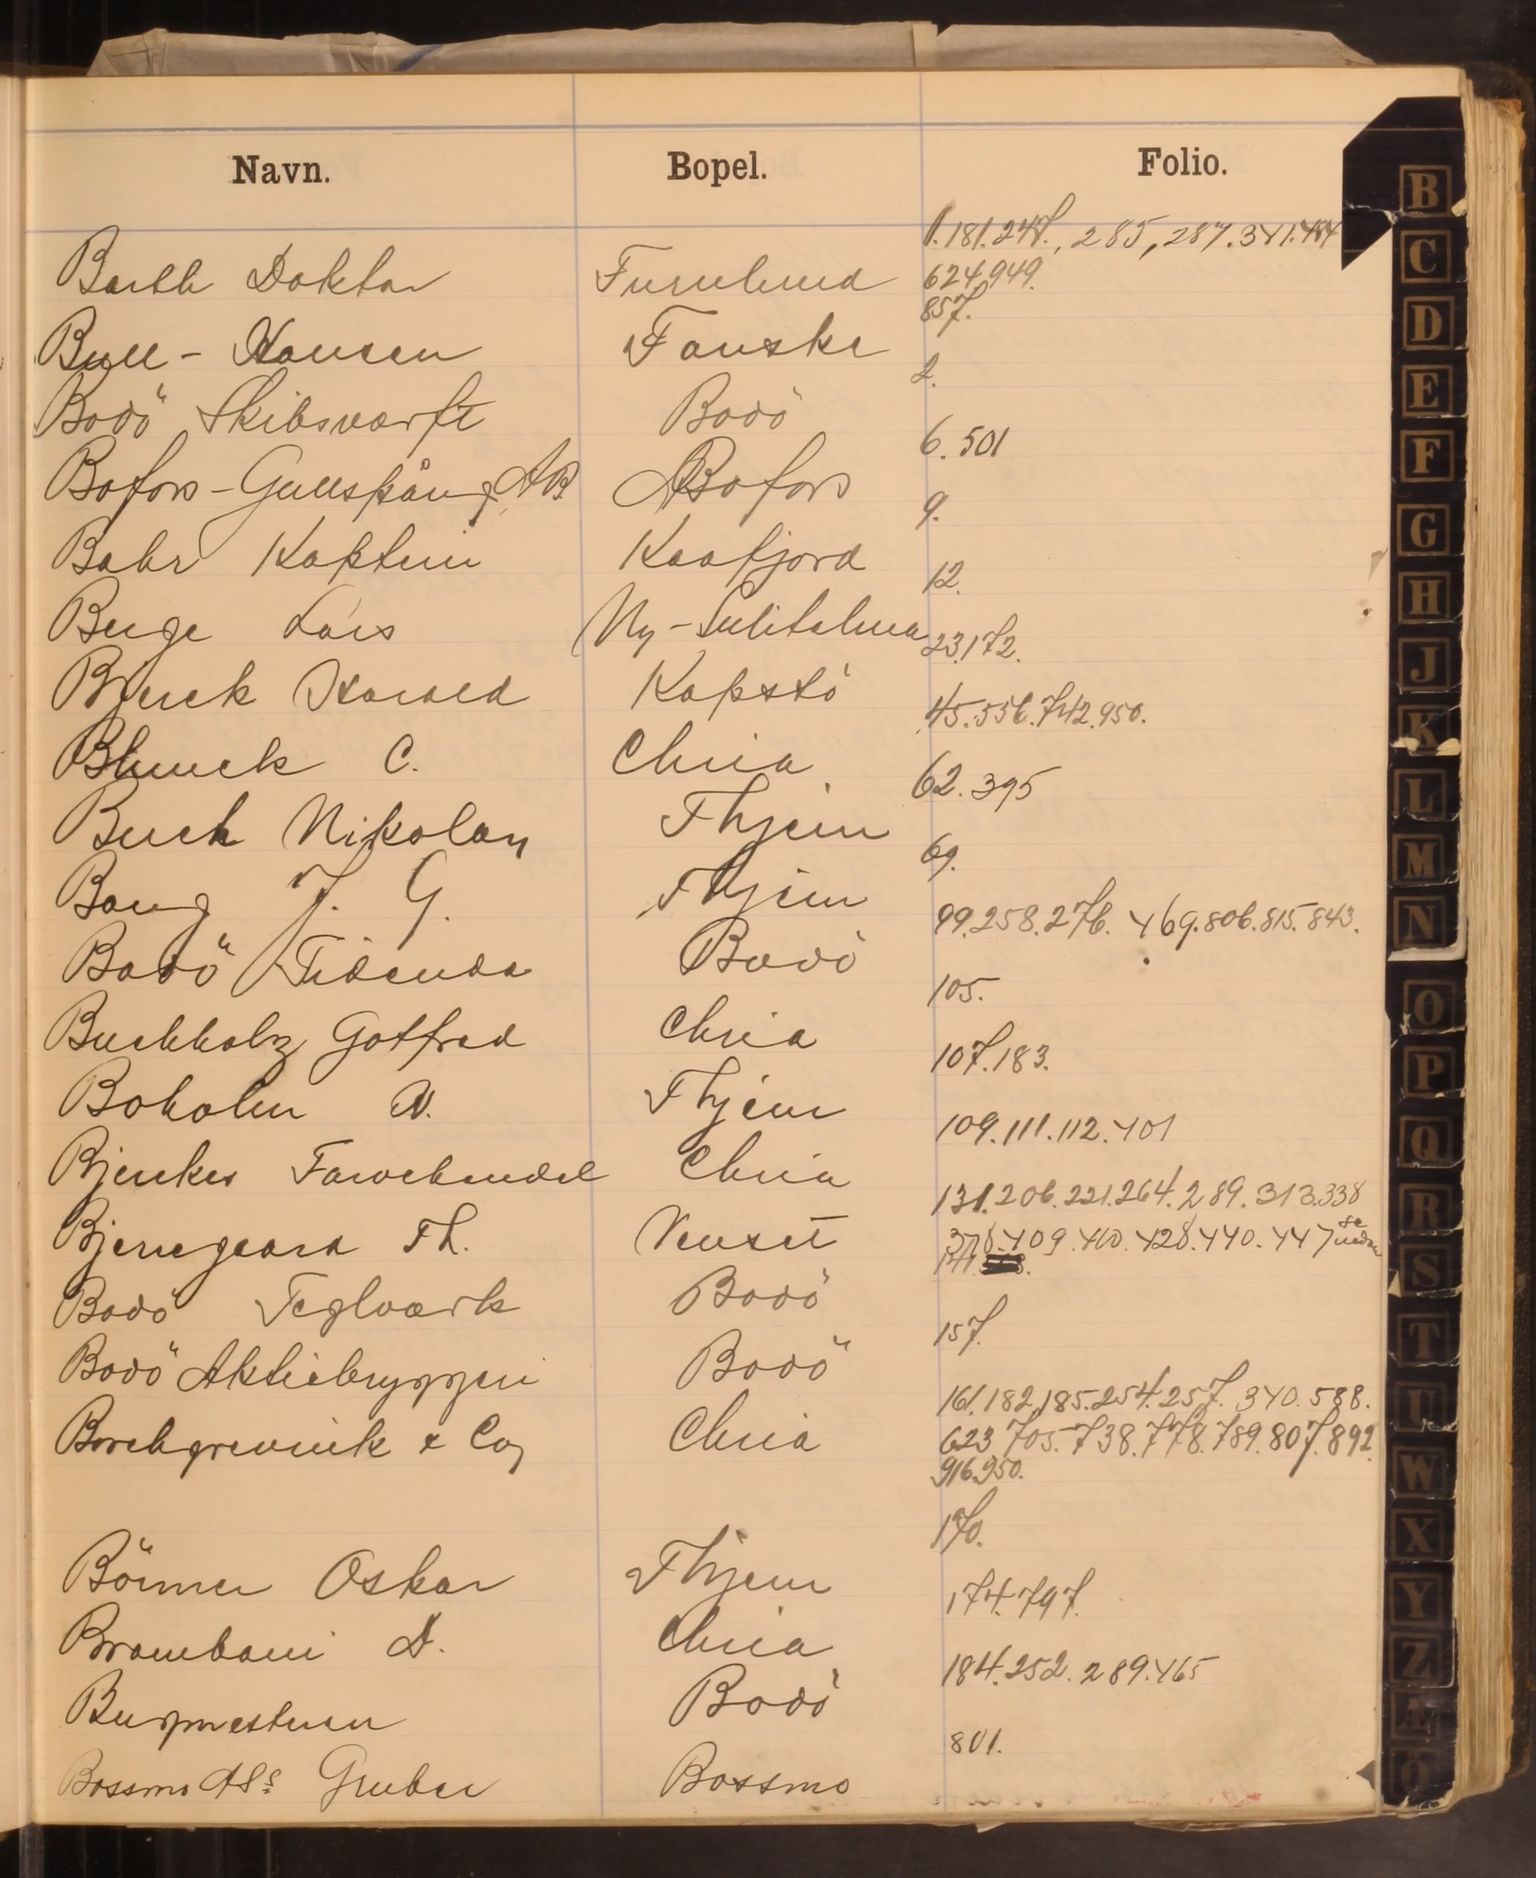 Navn. Bopel. Folio.
1.181.247., 285, 287.341.484
Barth Doktor Furulund 624.949.
857.
Bull-Hansen Fauske
2.
Bodö Skibsværft Bodö
6.501
Bofors-Gullspång AB. Bofors
9.
Bahr Kaptein Kaafjord
12.
Berge Lars Ny-Sulitelma
23.172.
Bjerck Harald Kapstö
45.556.742.950.
Blunck C. Chria
62.395
Buch Nikolay Thjem
69.
Bang J. G. Thjem
99.258.276. 469.806.815.843.
Bodö Tidende Bodö
105.
Buchholz Gotfred Chria
107.183.
Boholm N. Thjem
109.111.112.401
Bjerkes Farvehandel Chria
131.206.221.264.289.313.338
Bjerregaard Th. Venset 378.409.410.428.440.447 se nedm
Bodö Teglværk Bodö
157.
Bodö Aktiebryggeri Bodö
161.182.185.254.257.340.588.
Borchgrevink & Co, Chria 623.705.738.778.789.807.892.
916.950.
170.
Börmer Oskar Thjem
174.797.
Brambani D. Chria
184.252.289.465
Burgmesteren Bodö
801.
Bossmo A/s Gruber Bossmo
B
C
D
E
F
G
H
J
K
L
M
N
O
P
Q
R
S
T
U
W
X
Y
Z
Æ
Ö